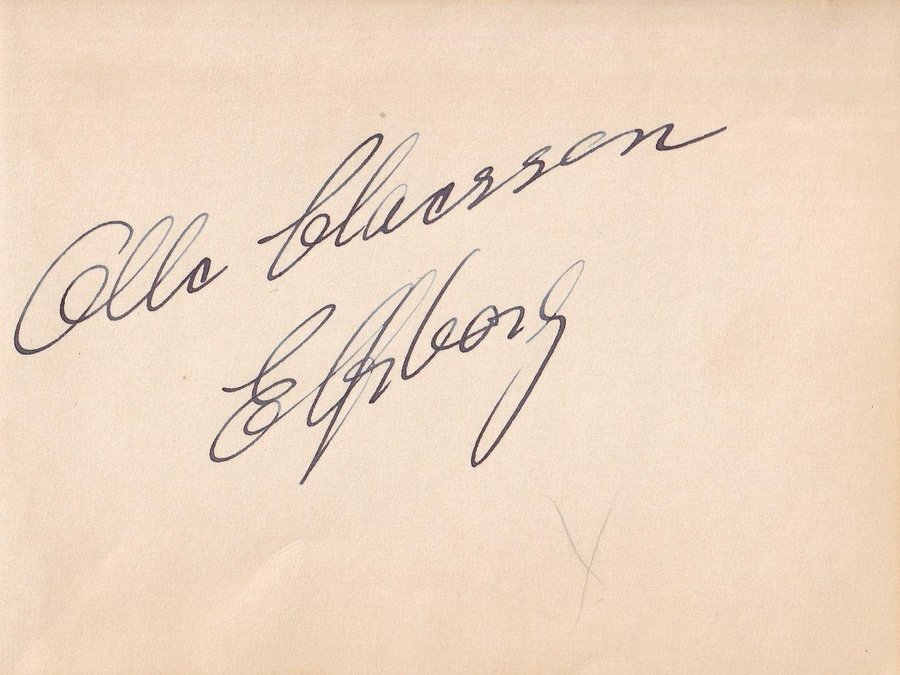 Olle Claesson
Elfsborg